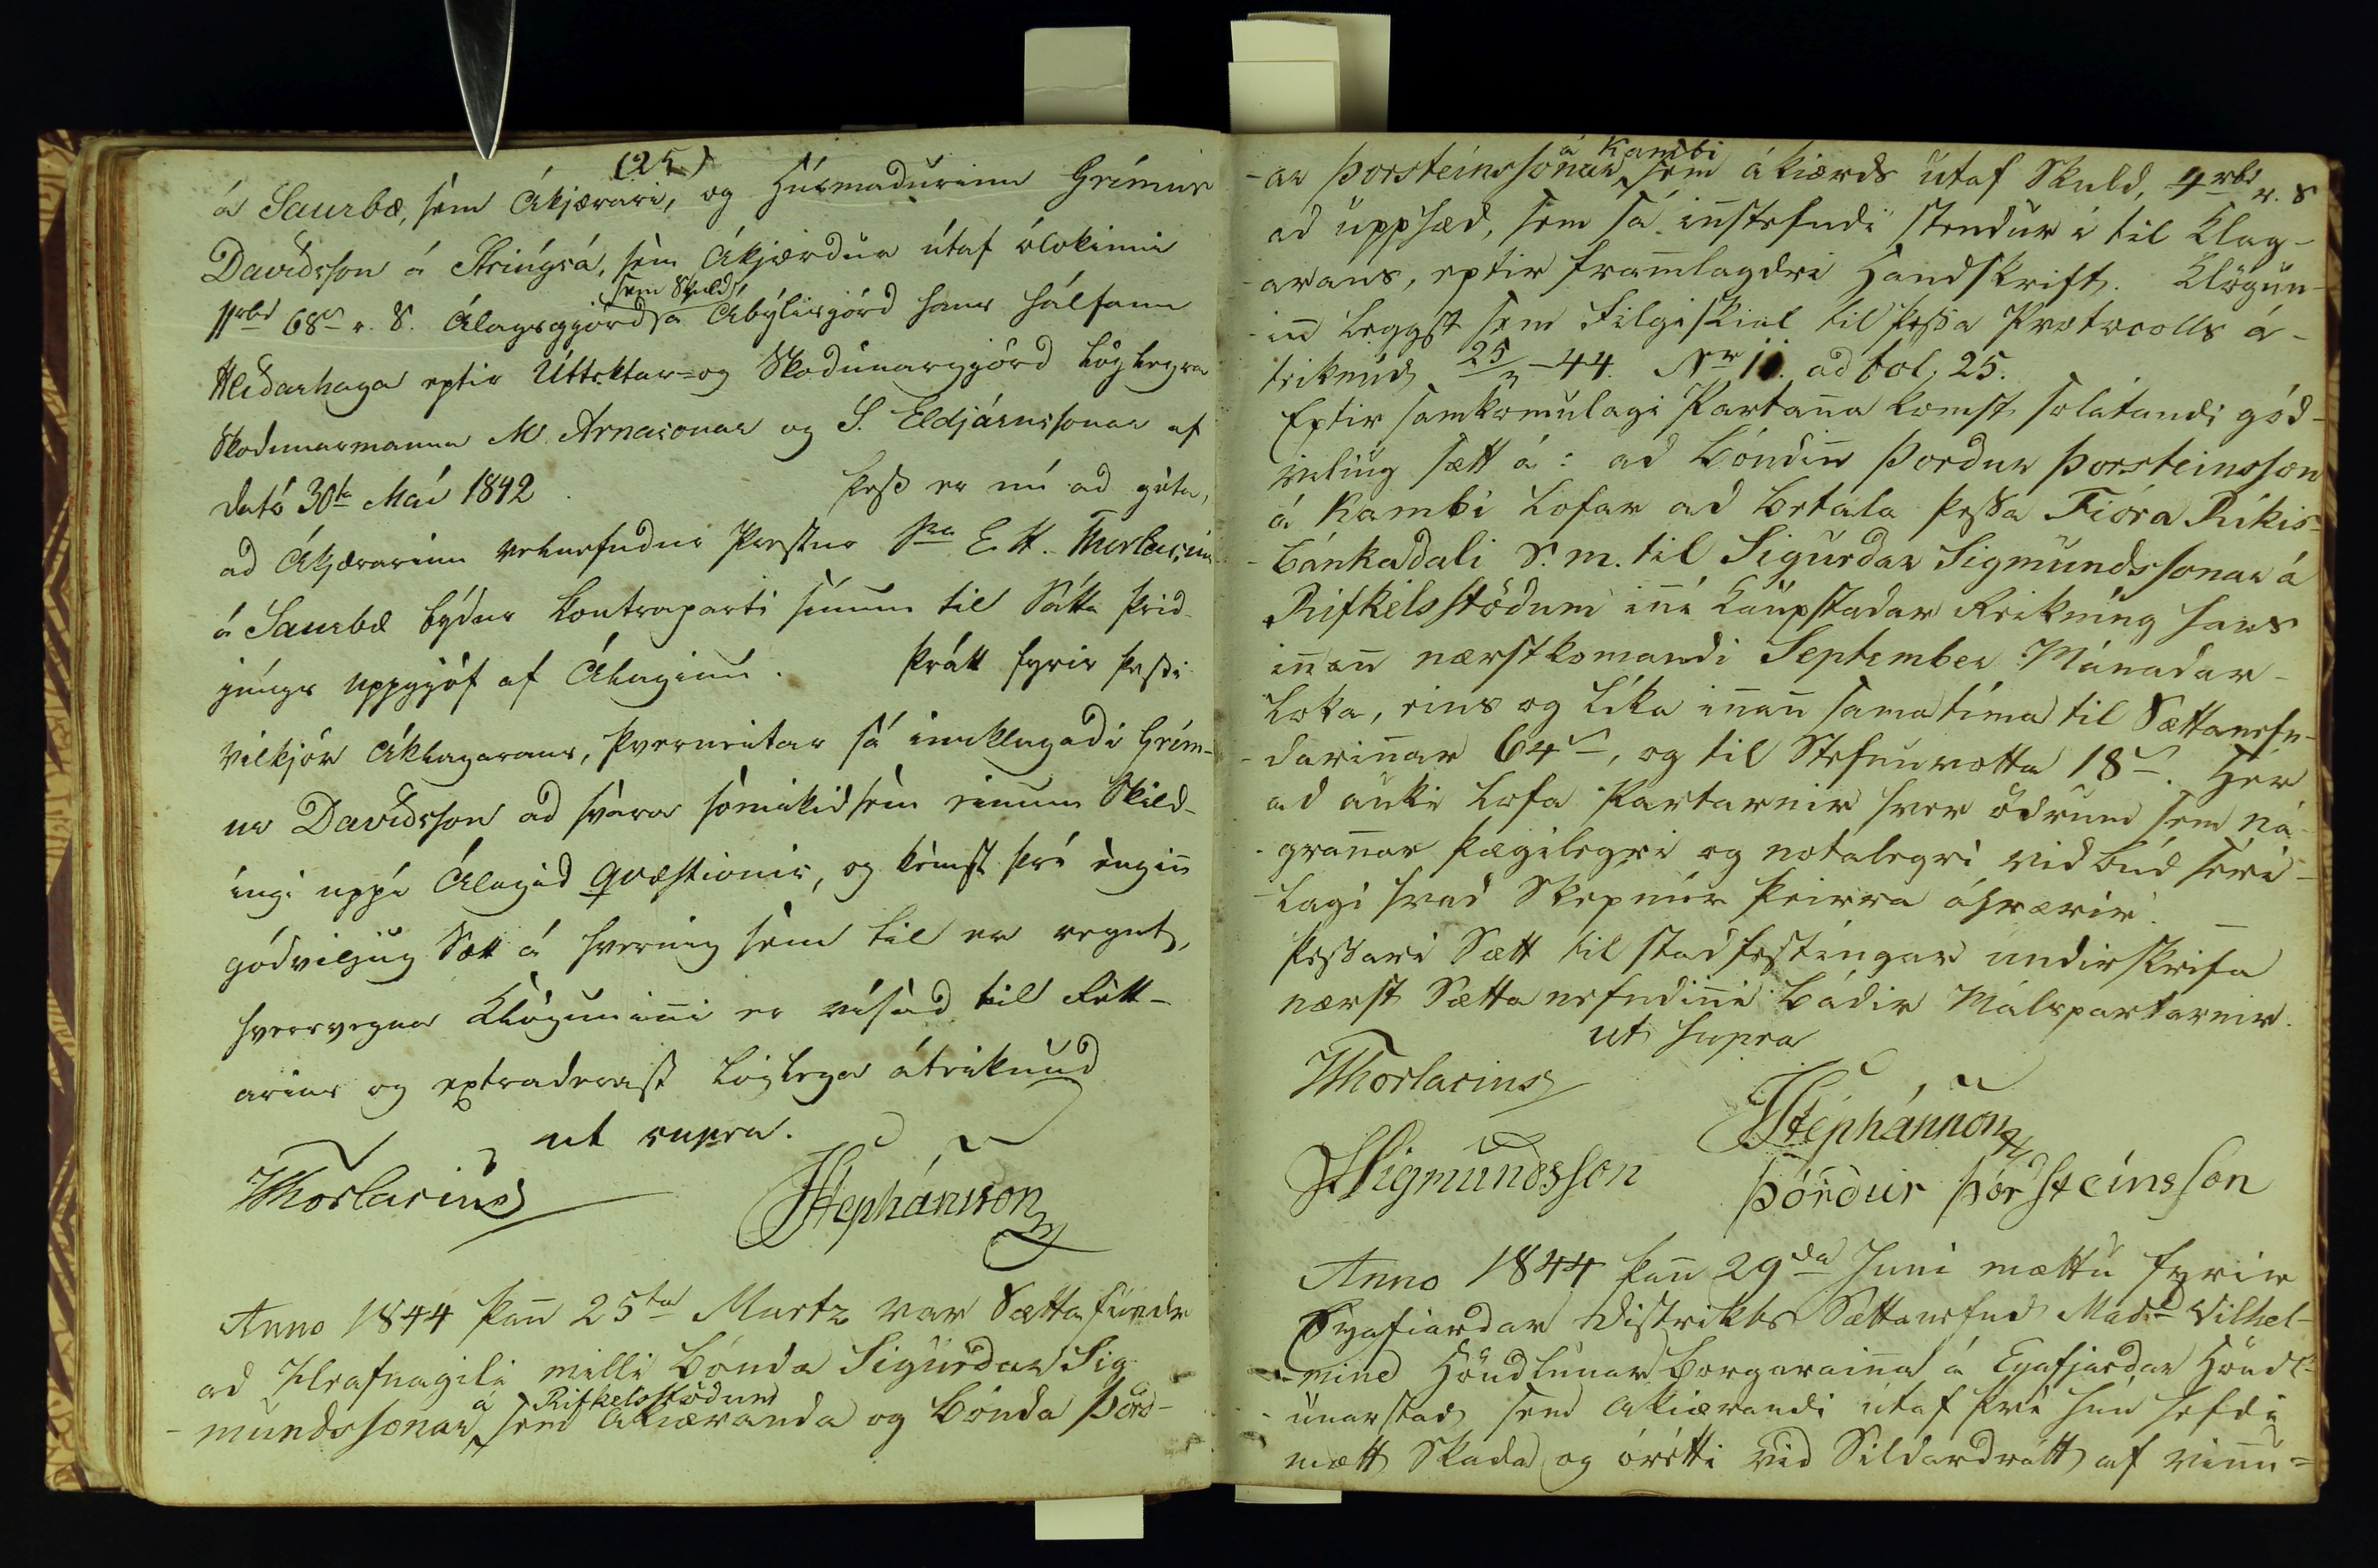 (25)
á Saurbæ, sem Ákjærari, og Húsmadurinn Grímur
Davídsson á Strúgsá, sem Ákjærdur útaf ólokinni
sem Skuld,
11rbd 68s r. S. Álagsgjörd á Ábýlisjörd hans hálfann
Hlídarhaga eptir Úttektar= og Skodunargjörd löglegra
Skodunarmanna M. Arnasonar og S. Eldjárnssonar af
dató 30ta Maí 1842. Þess er nú ad géta,
ad Ákjærarinn velnefndur Prestur Sra E. H. Thorlacius
á Saurbæ býdur Contraparti sínum til Sátta þrid-
júngs uppgjöf af Álaginu. Þrátt fyrir þessi
vilkjör Áklagarans, þverneitar sá innklagadi Grím-
ur Davídsson ad svara sómikid sem einum Skild-
ingi uppí Álagid qvæstionis, og kémst því èngin
gódviljug Sætt á hvernig sem til er reynt,
hversvegna Klöguninni er vísad til Rétt-
arins og extraderast löglega áteiknud
ut supra.
Thorlacius
JStephánsson
Anno 1844 þan 25ta Martz var Sættafundr
ad Hrafnagili milli bónda Sigurdar Sig-
á Rifkelsstödum
-mundssonar sem Ákiæranda og bónda Þórd-
á Kambi
-ar Þorsteinssonar sem ákiærds útaf Skuld, 4rbd r. S
ad upphæd, sem sá instefndi stendur í til Klag-
arans, eptir framlagdri Handskrift. Klögun-
in leggst sem Filgiskial til þessa Protocolls á-
teiknud 25/3-44. Nr 11. ad fol. 25.
Eptir samkomulagi Partana komst solátandi gód-
viliug sætt á: ad bóndin Þordur Þorsteinsson
á Kambi lofar ad betala þessa Fióra Ríkis-
bánkadali S. m. til Sigurdar Sigmundssonar á
Rifkelsstödum iní Kaupstadar Reikníng hans
inan nærstkomandi September Mánadar-
loka, eins og líka inan sama tíma til Sættanefn-
darinar 64s, og til Stefnuvotta 18s. Hér
ad auki lofa Partarnir hver ödrum sem ná-
granar þægilegri og notalegri vidbúd héri-
lagi hvad Skepnur þeirra áhrærir.
Þessari Sætt til stadfestingar undirskrifa
nærst Sættanefndini bádir Málspartarnir.
ut supra
Thorlacius
JStephánsson
SSigmundsson
Þórdur Þórsteinsson
Anno 1844 þan 29da Juni mættu fyrir
Eyafiardar Districkts Sættanefnd Madme Vilhel-
-mine Höndlunar borgarainna á Eyafjardar Höndl-
unarstad sem Ákiærandi útaf því hún hefdi
mætt Skada og órétti vid Sildardrátt af vinu=